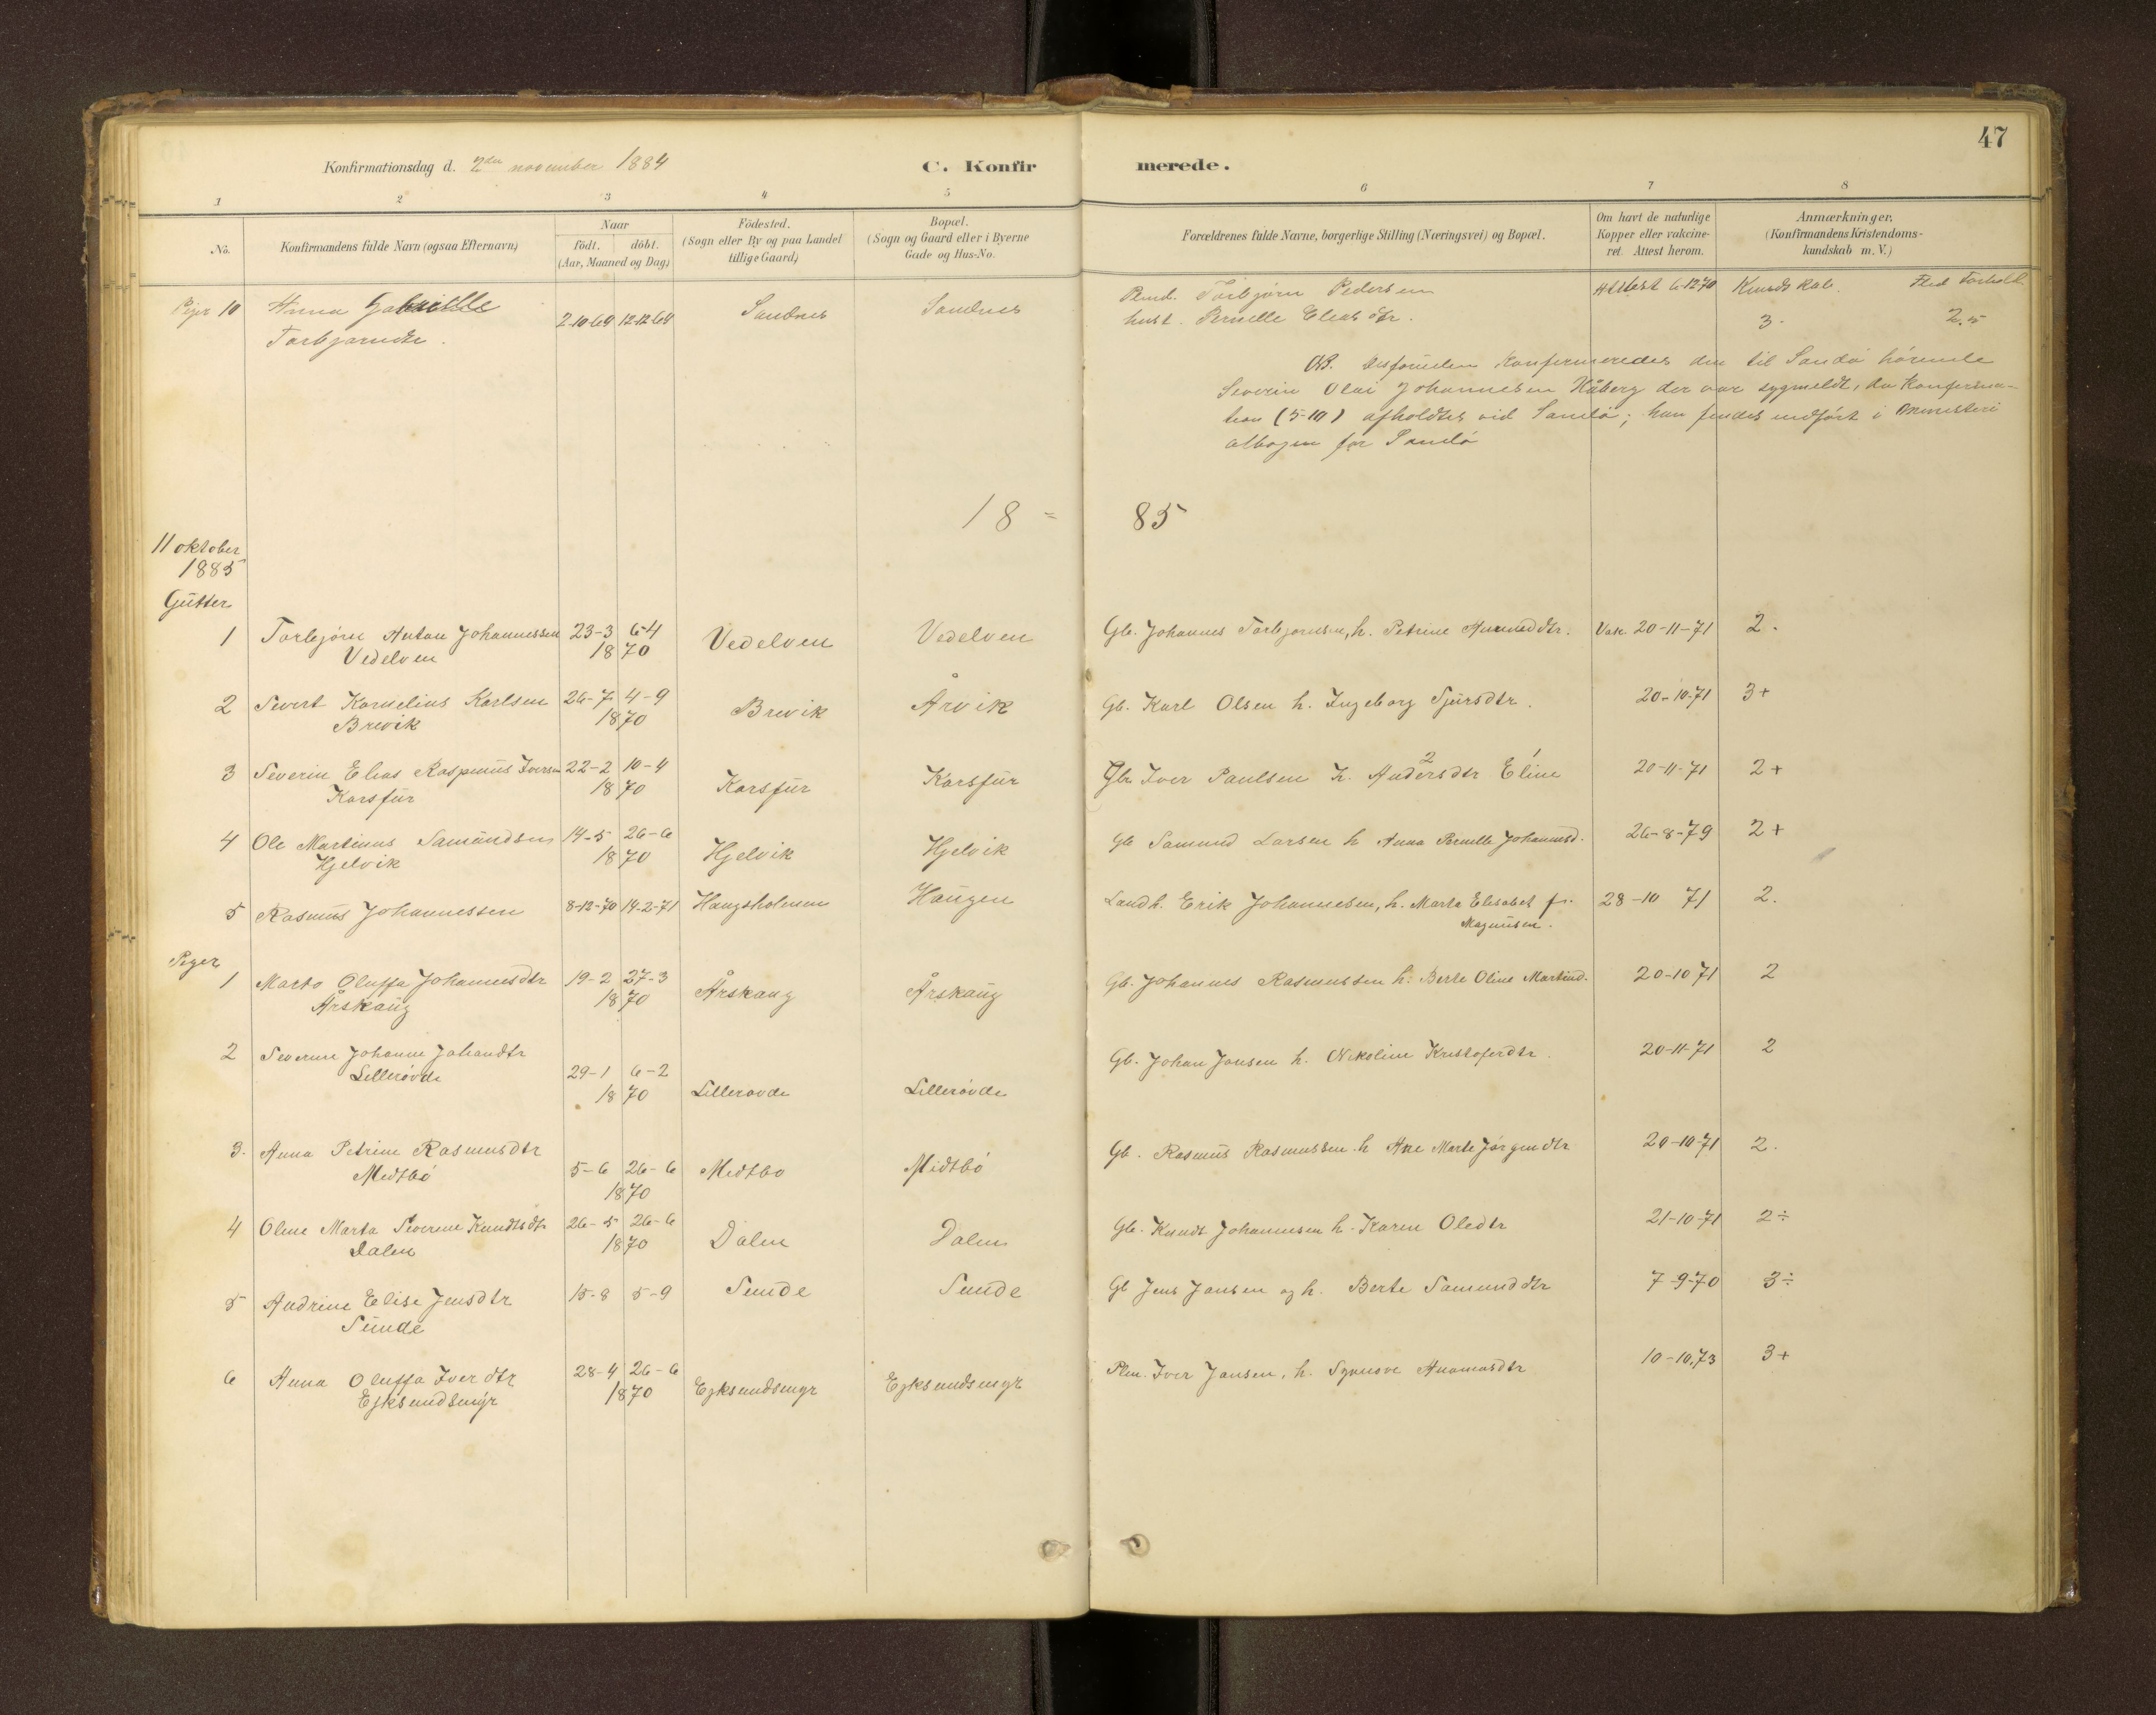 47
Konfirmationsdag d. 2den november 1884 C. Konfirmerede.
1 2 3 4 5 6 7 8
No. Konfirmandens fulde Navn (ogsaa Efternavn) Naar födt. döbt. (Aar, Maaned og Dag) Födested. (Sogn eller By og paa Landet tillige Gaard) Bopæl. (Sogn og Gaard eller i Byerne Gade og Hus-No. Forældrenes fulde Navne, borgerlige Stilling (Næringsvei) og Bopæl. Om havt de naturlige Kopper eller vakcineret. Attest herom. Anmærkninger. (Konfirmandens Kristendomskundskab m. V.)
Piger 10 Anna Gabrielle 2-10-69 12-12-69 Sandnes Sandnes Torbjørn Pedersen Attest 6-12 70 Kundskab. Flid Forhold
Torbjørndtr. hust. Pernille Elias dtr. 3. 2.5
NB. Desforuden konfirmeredes den til Sandö hörende
Severin Olai Johannesen Håberg der var sygmeldt, da konfirma-
tion (5-10) afholdtes ved Sandö; han findes indfört i ministeri
albogen for Sandö
18 = 85
11 oktober
1885
Gutter
1 Torbjörn Anton Johannessen 23-3 6-4 Vedelven Vedelven Gb. Johannes Torbjørnsen, h. Petrine Amunddtr. Vak. 20-11-71 2.
Vedelven 1870
2 Sivert Kornelius Karlsen 26-7 4-9 Brevik Årvik Gb. Karl Olsen h. Ingeborg Sjursdtr. 20-10-71 3+
Brevik 1870
3 Severin Elias Raspmus Iversen 22-2 10-4 Korsfur Korsfur Gb. Iver Paulsen h. Andersdtr Eline 20-11-71 2+
Korsfur 1870 2 1
4 Ole Martinus Samundsen 14-5 26-6 Hjelvik Hjelvik Gb Samund Larsen h Anna Pernille Johannesd. 26-8-79 2+
Hjelvik 1870
5 Rasmus Johannessen 8-12-70 14-2-71 Haugsholmen Haugen Landh. Erik Johannesen, h. Marta Elisabet f. 28-10 71 2.
Magnusen.
Piger
1 Marto Oluffa Johannesdtr 19-2 27-3 Årskaug Årskaug Gb. Johannes Rasmussen h: Berte Oline Martind. 20-10 71 2
Årskaug 1870
2 Severine Johanne Johandtr 29-1 6-2 Lillerovde Lilleróvde Gb. Johan Jonsen h. Nikoline Kristoferdtr. 20-11-71 2
Lilleróvde 1870
3. Anna Petrine Rasmusdtr 5-6 26-6 Medtbo Midtbö Gb. Rasmus Rasmussen. h Ane Marte Jörgendtr 20-10-71 2.
Medtbö 1870
4 Oline Marta Severine Knudtsdtr 26-5 26-6 Dalen Dalen Gb. Knudt Johannesen h. Karen Oledtr 21-10-71 2÷
Dalen 1870
5 Andrine Elise Jensdtr 15-8 5-9 Sunde Sunde Gb Jens Jansen og h. Berte Samunddtr 7-9-70 3÷
Sunde
6 Anna Oluffa Iverdtr 28-4 26-6 Ejksundsmyr Ejksundsmyr Plm. Iver Jansen, h. Synnove 10-10,73 3+
Ejksundsmyr 1870